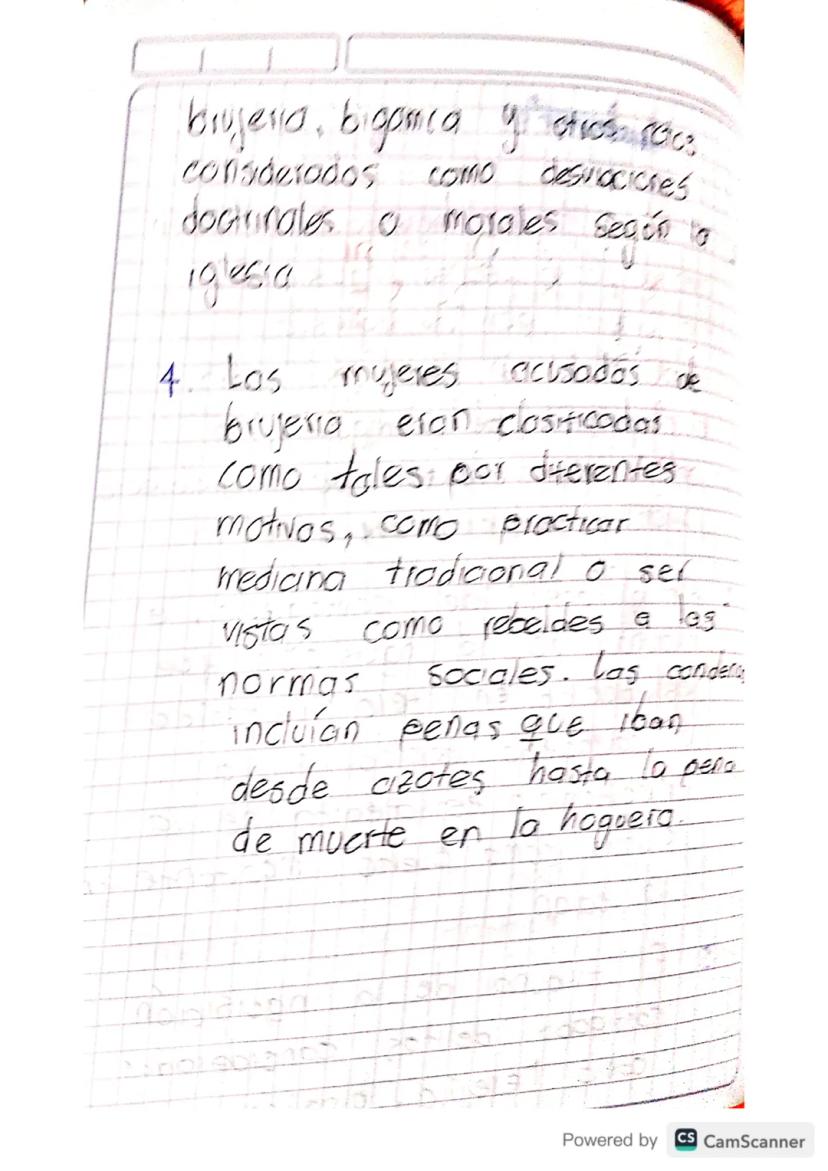 brujeria, bigamia y otros
considerados como desviaciones
doctrinales o morales según la
iglesia
4. Las mujeres acusadas de
brujeria eran clasificadas
como tales por diferentes
motivos, como practicar
medicina tradicional o ser
vistas como rebeldes a las
normas sociales. Las
incluían penas que iban
desde azotes hasta la pena
de muerte en la hoguera.
Powered by CS CamScanner